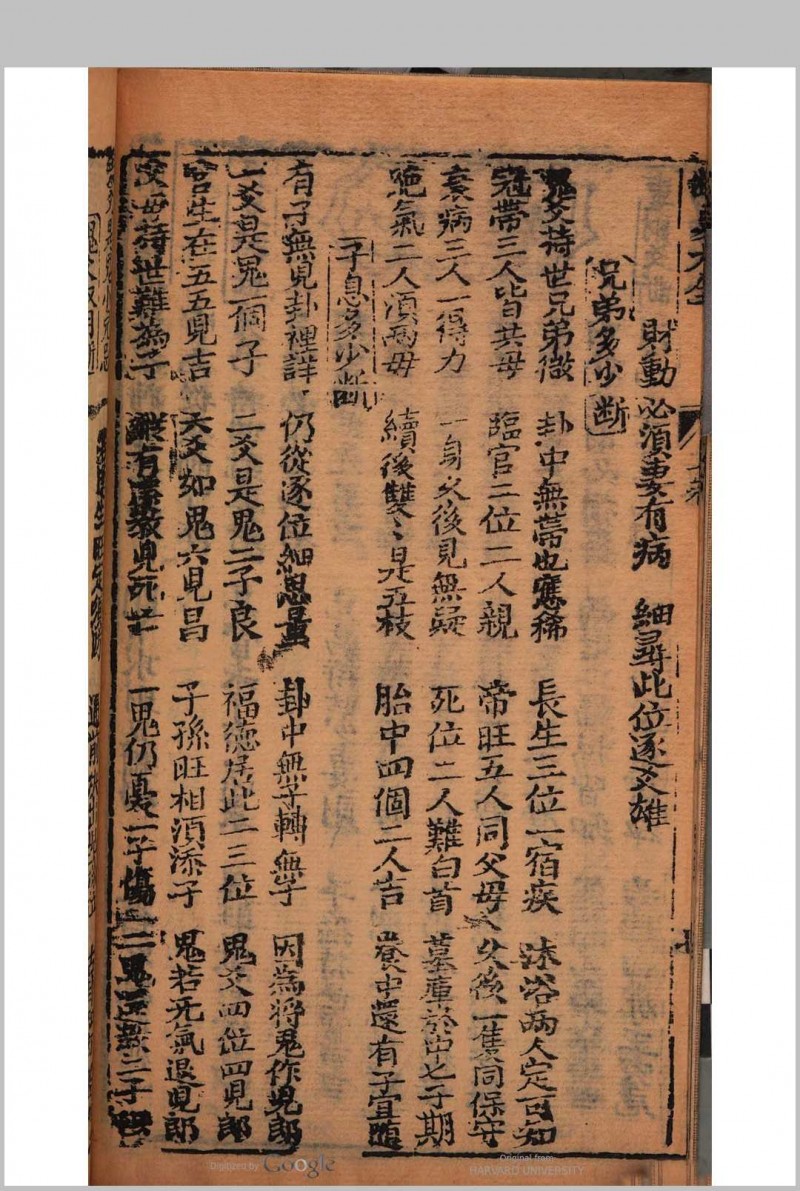 財動必須妻有病　細尋此位逐爻雄
兄弟多少断
鬼爻持世兄弟微　卦中無蒂也應稀　長生三位一宿疾　沐浴兩人定可知
冠帶三人皆共母　臨官二位二人親　帝旺五人同父母　父後一隻同保守
衰病三人一得力　一身父後見無疑　死位二人難白首　墓庫於中七子期
絕氣二人須兩母　續後雙〻是五枝　胎中四個二人吉　養中還有子宜隨
子息多少断
有子無兒卦裡詳　仍從逐位細思量　卦中無子轉無子　因為將鬼作兒郎
一爻是鬼一個子　二爻是鬼二子良　福德居此二三位　鬼爻四位四兒郎
宮生在五五兒吉　六爻如鬼六兒昌　子孫旺相須添子　鬼若死氣退兒郎
父母持世難為子　縱有兒死　一鬼仍憂一子傷　二鬼二子
Digitized by Google
Original from
HARVARD UNIVERSITY